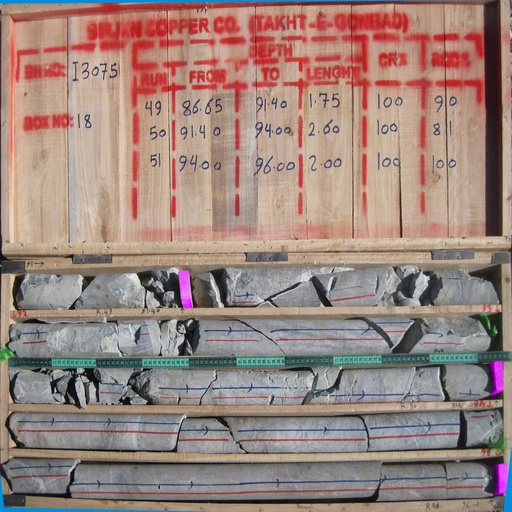 SIRJAN COPPER CO. (TAKHT-E-GONBAD)
DEPTH
BH NO: I3075 RUN FROM TO LENGH CR% RQD%
49 86.65 91.40 1.75 100 90
BOX NO: 18 50 91.40 94.00 2.60 100 81
51 94.00 96.00 2.00 100 100